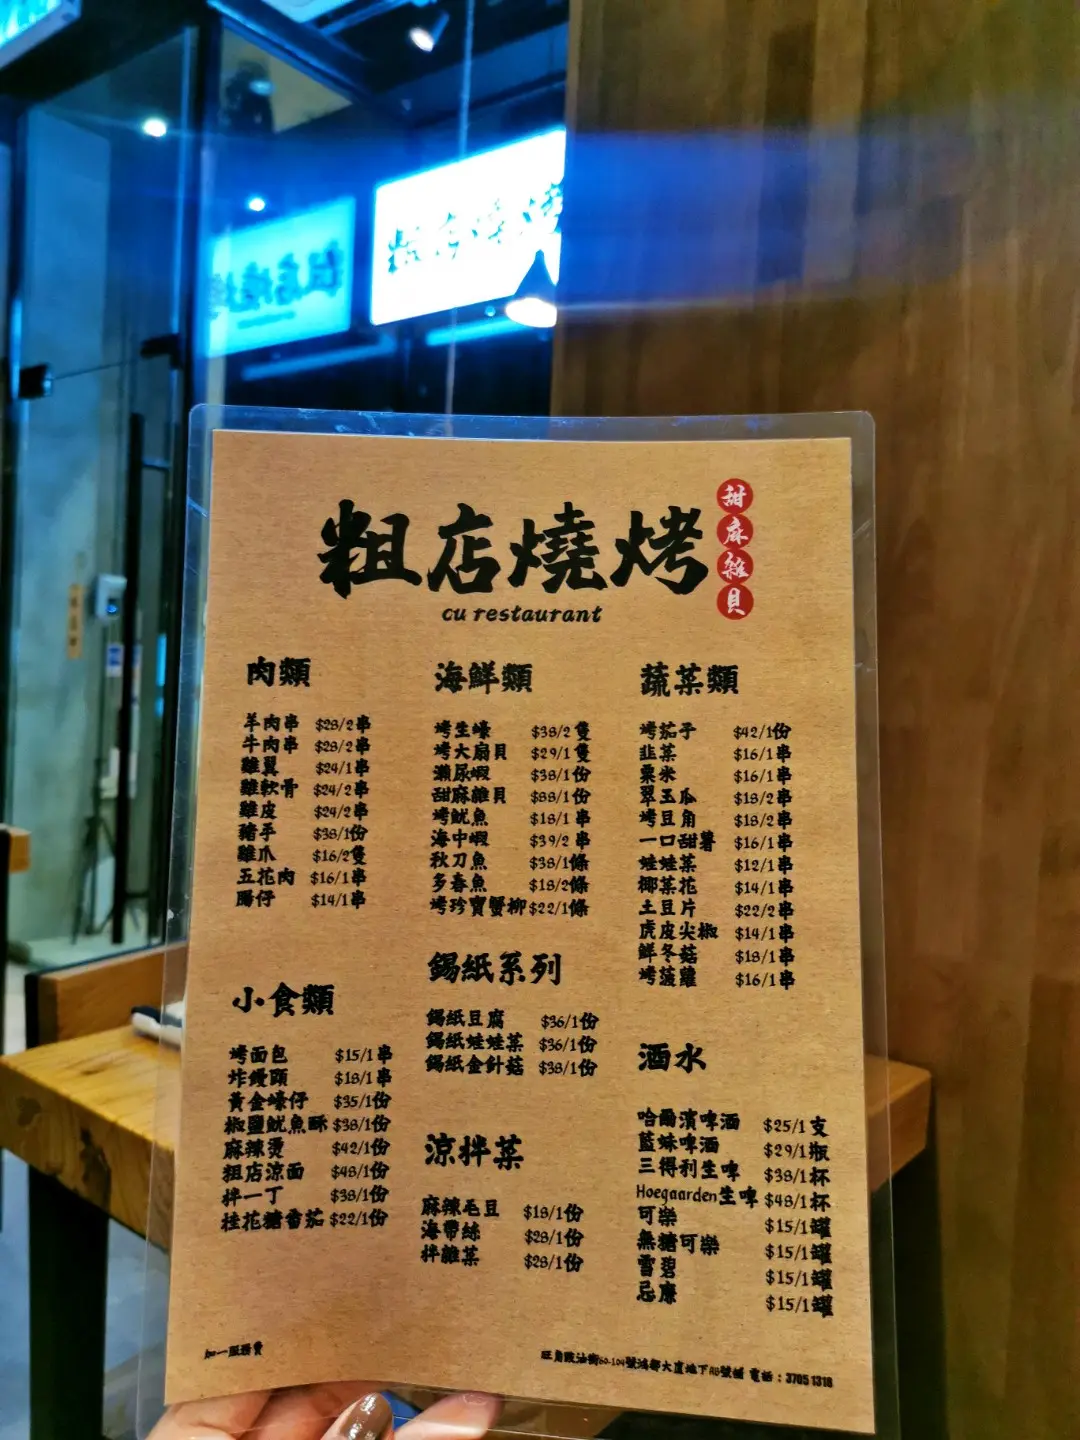 粗店燒烤
甜麻雜貝
cu restaurant
肉類
羊肉串 $28/2串
牛肉串 $28/2串
雞翼 $24/1串
雞軟骨 $24/2串
雞皮 $24/2串
豬手 $38/1份
雞爪 $16/2隻
五花肉 $16/1串
腸仔 $14/1串
小食類
烤面包 $15/1串
炸饅頭 $18/1串
黃金蠔仔 $35/1份
椒鹽魷魚酥 $38/1份
麻辣燙 $42/1份
粗店涼面 $48/1份
拌一丁 $38/1份
桂花糖番茄 $22/1份
海鮮類
烤生蠔 $38/2隻
烤大扇貝 $29/1隻
瀨尿蝦 $38/1份
甜麻雜貝 $88/1份
烤魷魚 $18/1串
海中蝦 $39/2串
秋刀魚 $38/1條
多春魚 $18/2條
烤珍寶蟹柳 $22/1條
錫紙系列
錫紙豆腐 $36/1份
錫紙娃娃菜 $36/1份
錫紙金針菇 $38/1份
涼拌菜
麻辣毛豆 $18/1份
海帶絲 $28/1份
拌雜菜 $28/1份
蔬菜類
烤茄子 $42/1份
韭菜 $16/1串
粟米 $16/1串
翠玉瓜 $18/2串
烤豆角 $18/2串
一口甜薯 $16/1串
娃娃菜 $12/1串
椰菜花 $14/1串
土豆片 $22/2串
虎皮尖椒 $14/1串
鮮冬菇 $18/1串
烤菠蘿 $16/1串
酒水
哈爾濱啤酒 $25/1支
藍妹啤酒 $29/1瓶
三得利生啤 $38/1杯
Hoegaarden生啤 $48/1杯
可樂 $15/1罐
無糖可樂 $15/1罐
雪碧 $15/1罐
忌廉 $15/1罐
加一服務費
旺角豉油街60-104號鴻都大廈地下AB號舖 電話：3705 1318